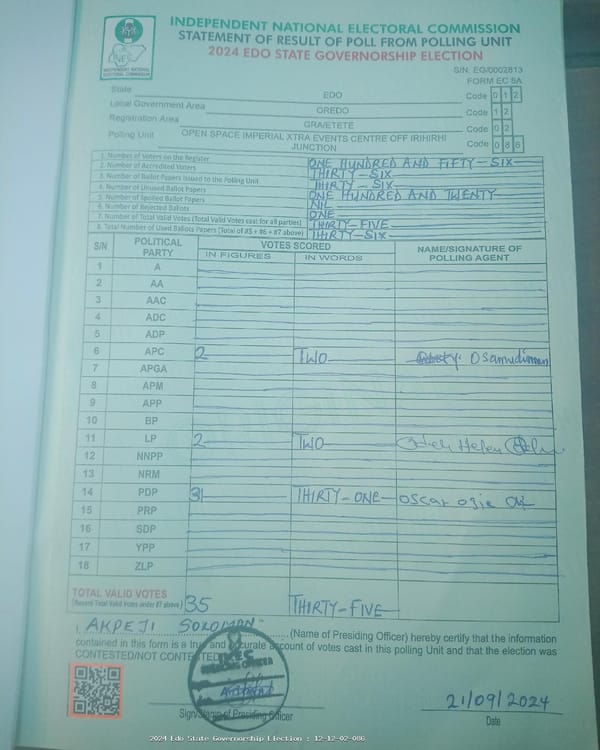 INDEPENDENT NATIONAL ELECTORAL COMMISSION
STATEMENT OF RESULT OF POLL FROM POLLING UNIT
2024 EDO STATE GOVERNORSHIP ELECTION
INEC
INDEPENDENT NATIONAL ELECTORAL COMMISSION
S/N: EG/0002813
FORM EC 8A
State EDO Code 0 1 2
Local Government Area OREDO Code 1 2
Registration Area GRA/ETETE Code 0 2
Polling Unit OPEN SPACE IMPERIAL XTRA EVENTS CENTRE OFF IRIHIRHI JUNCTION Code 0 8 6
1. Number of Voters on the Register ONE HUNDRED AND FIFTY-SIX
2. Number of Accredited Voters THIRTY-SIX
3. Number of Ballot Papers Issued to the Polling Unit THIRTY-SIX
4. Number of Unused Ballot Papers ONE HUNDRED AND TWENTY
5. Number of Spoiled Ballot Papers NIL
6. Number of Rejected Ballots ONE
7. Number of Total Valid Votes (Total Valid Votes cast for all parties) THIRTY-FIVE
8. Total Number of Used Ballots Papers (Total of #5 + #6 + #7 above) THIRTY-SIX
S/N POLITICAL PARTY VOTES SCORED NAME/SIGNATURE OF POLLING AGENT
IN FIGURES IN WORDS
1 A
2 AA
3 AAC
4 ADC
5 ADP
6 APC 2 TWO Osamudiamen
7 APGA
8 APM
9 APP
10 BP
11 LP 2 TWO Helen
12 NNPP
13 NRM
14 PDP 31 THIRTY-ONE OSCAR Ogie
15 PRP
16 SDP
17 YPP
18 ZLP
TOTAL VALID VOTES 35 THIRTY-FIVE
(Record Total Valid Votes under #7 above)
I, AKPEJI SOLOMON (Name of Presiding Officer) hereby certify that the information
contained in this form is a true and accurate account of votes cast in this polling Unit and that the election was
CONTESTED/NOT CONTESTED
INEC
21/09/2024
Sign/Stamp of Presiding Officer Date
2024 Edo State Governorship Election : 12-12-02-086